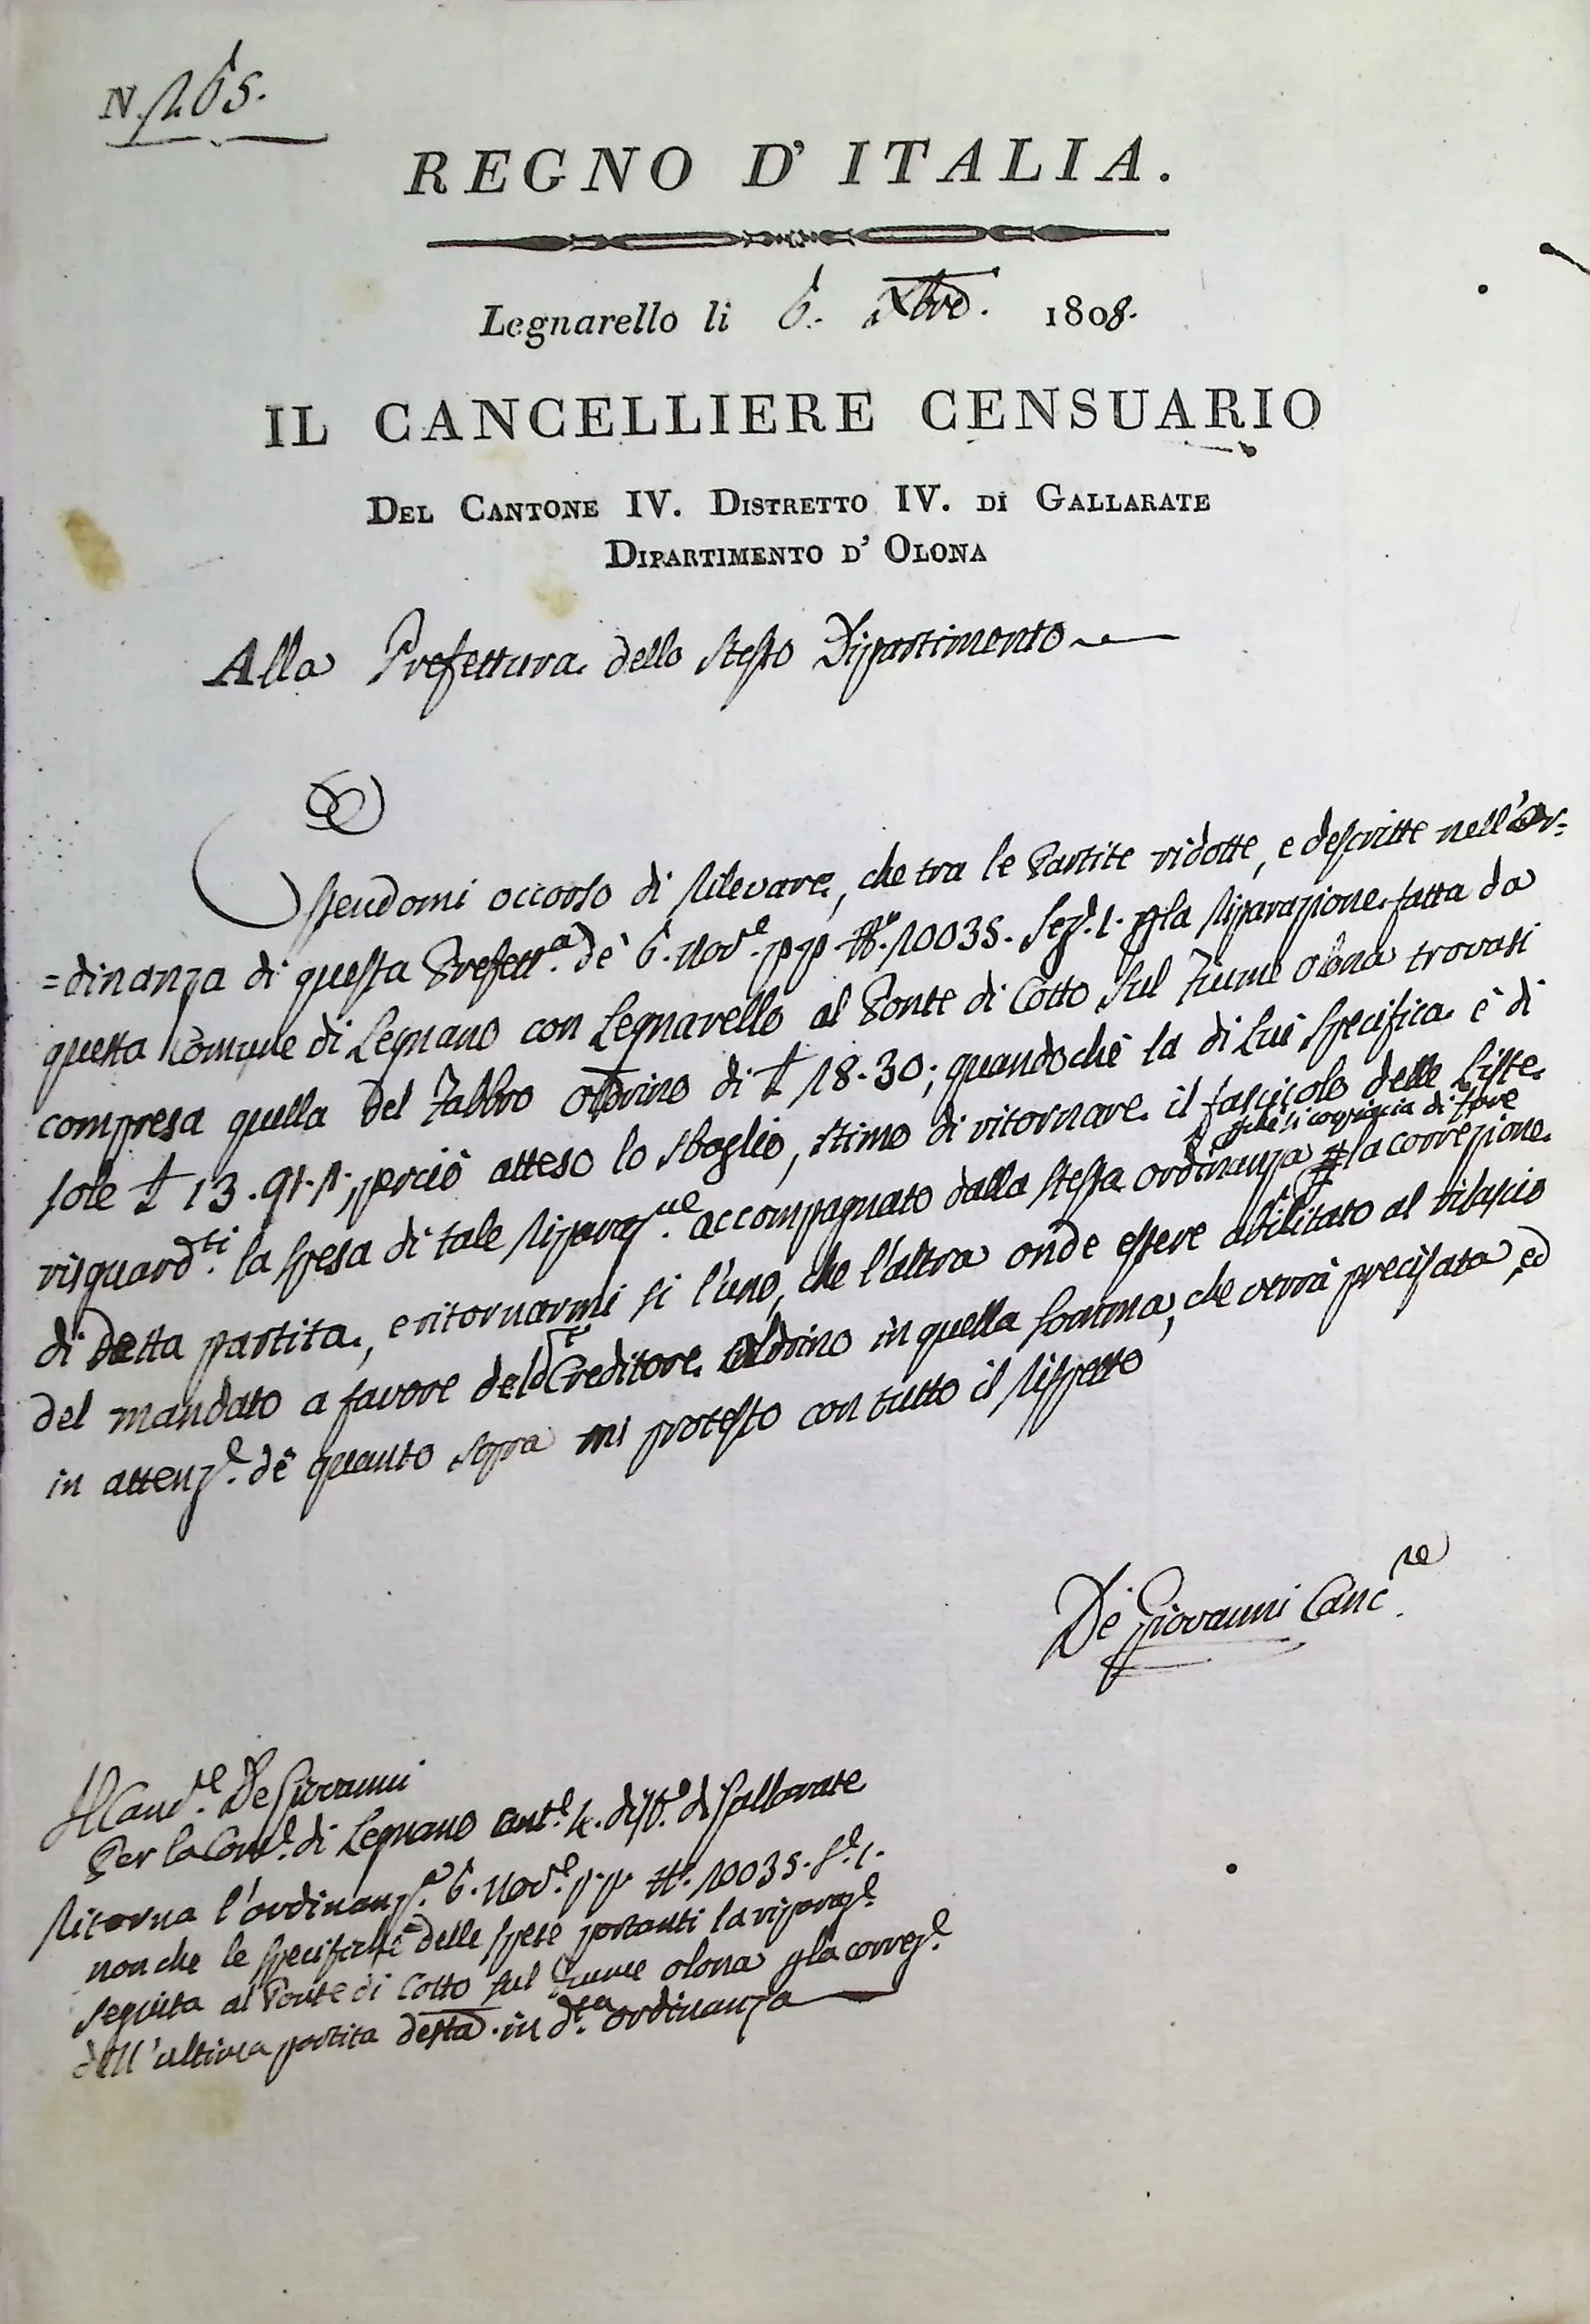 N. 265.
REGNO D' ITALIA.
Legnarello li 6. Xbre. 1808.
IL CANCELLIERE CENSUARIO
DEL CANTONE IV. DISTRETTO IV. DI GALLARATE
DIPARTIMENTO D' OLONA
Alla Prefettura dello stesso Dipartimento
Essendomi occorso di rilevare, che tra le Partite ridotte, e descritte nell'Or=
=dinanza di questa Prefett.a de' 6. Nov.e pp. N.o 10035. Sez.e 1. p la riparazione fatta da
questa Comune di Legnano con Legnarello al Ponte di Cotto sul Fiume Olona trovasi
compresa quella del Fabbro Oldrino di £ 18.30; quandochè la di lui specifica è di
sole £ 13.91.1; perciò atteso lo sbaglio, stimo di ritornare il fascicolo delle Liste
risguard.ti la spesa di tale riparaz.ne accompagnato dalla stessa ordinanza la correzione
pchè si compiaccia di fare
di detta partita, e ritornarmi sì l'uno, che l'altra onde essere abilitato al rilascio
del mandato a favore del d.o Creditore Oldrino in quella somma, che verrà precisata, ed
in attenz.e de quanto sopra mi protesto con tutto il rispetto
De Giovanni Canc.re
Il Canc.re De Giovanni
Per la Com.e di Legnano Cant.e 4. dist.o di Gallarate
Ritorna l'ordinanz.a 6. Nov.e pp. N.o 10035. S.e 1.
nonche le specifiche delle spese portanti la riparaz.e
seguita al Ponte di Cotto sul Fiume Olona p la correz.e
dell'ultima partita in d.ta ordinanza